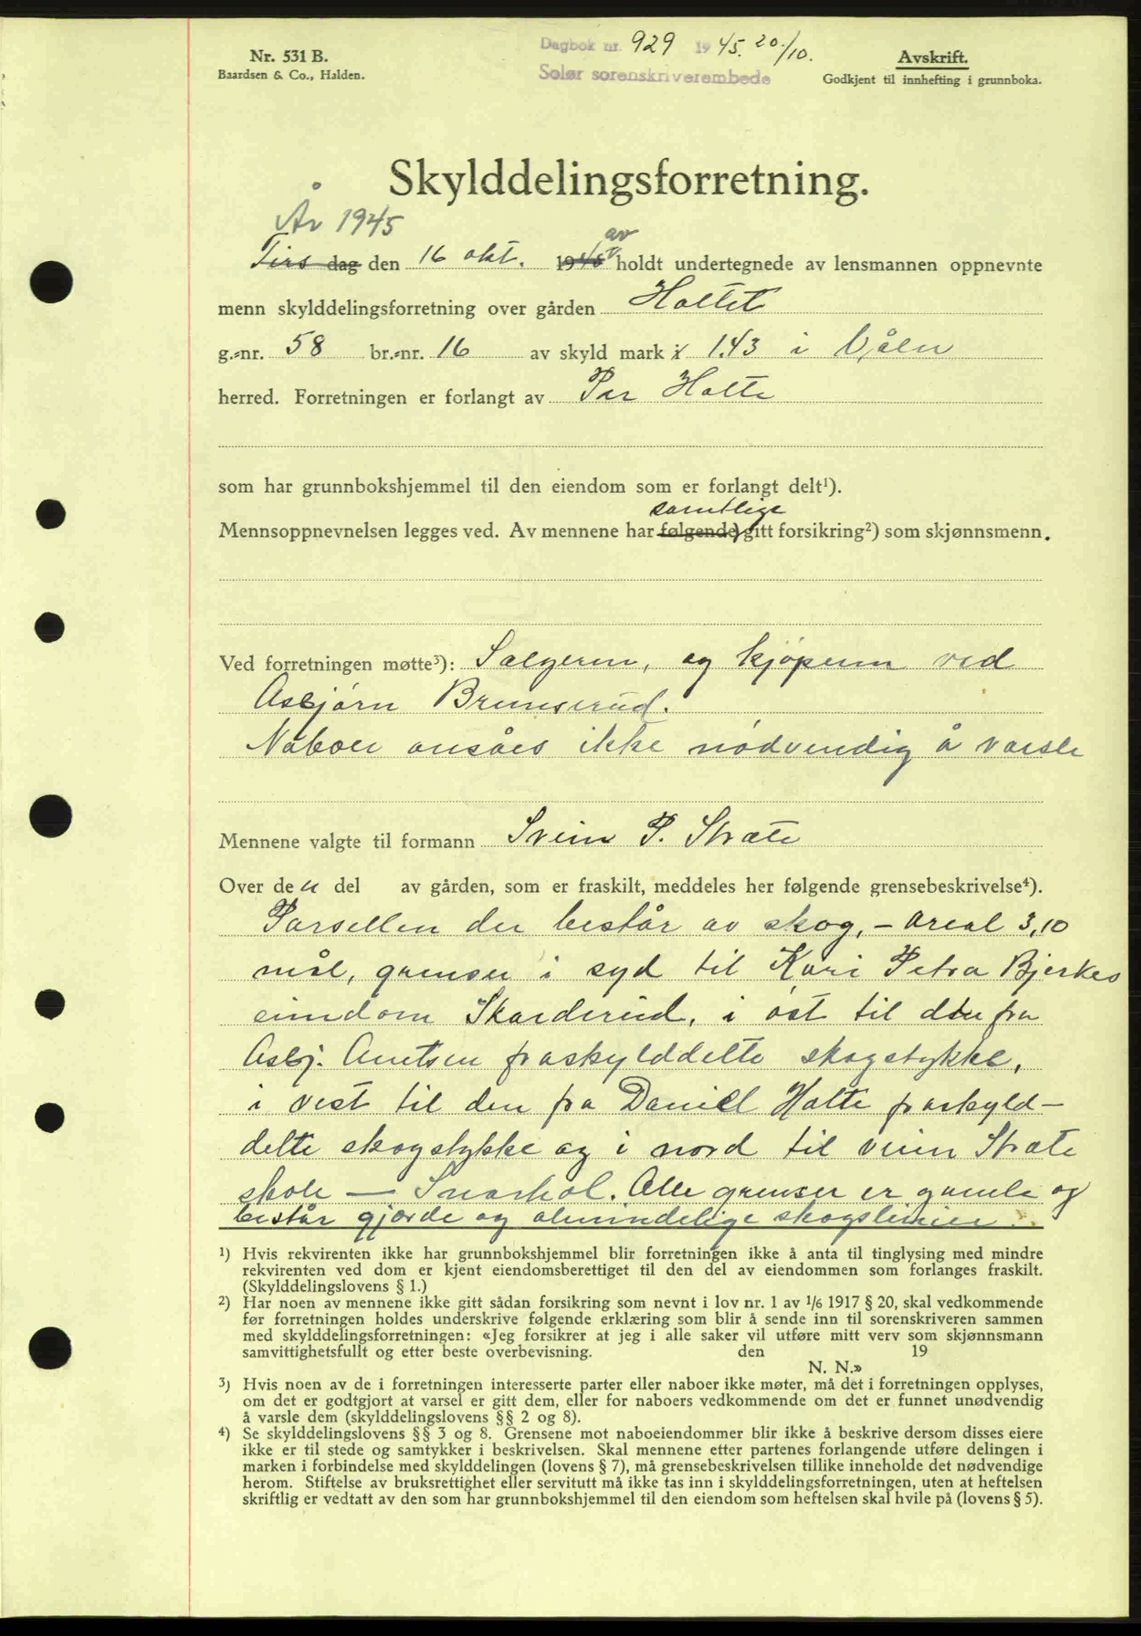 Nr. 531 B.
Baardsen & Co., Halden.
Dagbok nr. 929 1945. 20/10.
Solør sorenskriverembede
Avskrift.
Godkjent til innhefting i grunnboka.
Skylddelingsforretning.
År 1945
av
Tirs dag den 16 okt. 1945 holdt undertegnede av lensmannen oppnevnte
menn skylddelingsforretning over gården Holtet
g.-nr. 58 br.-nr. 16 av skyld mark 1.43 i Våler
herred. Forretningen er forlangt av Per Holte
som har grunnbokshjemmel til den eiendom som er forlangt delt¹).
samtlige
Mennsoppnevnelsen legges ved. Av mennene har følgende) gitt forsikring²) som skjønnsmenn.
Ved forretningen møtte³): Sælgeren, og kjøperen ved
Asbjørn Brunserud.
Naboer ansåes ikke nødvendig å varsle
Mennene valgte til formann Svein P. Stræte
Over den del av gården, som er fraskilt, meddeles her følgende grensebeskrivelse⁴).
Parsellen der består av skog, - areal 3,10
mål, grenser i syd til Kari Petra Bjerkes
eiendom Skarderud, i øst til den fra
Asbj. Auetsen fraskylddelte skogstykke,
i vest til den fra Daniel Holte fraskyld-
delte skogstykke og i nord til veien Stræte
skole - Snarhol. Alle grenser er gamle og
består gjærde og almindelige skogslinier.
¹) Hvis rekvirenten ikke har grunnbokshjemmel blir forretningen ikke å anta til tinglysing med mindre
rekvirenten ved dom er kjent eiendomsberettiget til den del av eiendommen som forlanges fraskilt.
(Skylddelingslovens § 1.)
²) Har noen av mennene ikke gitt sådan forsikring som nevnt i lov nr. 1 av 1/6 1917 § 20, skal vedkommende
før forretningen holdes underskrive følgende erklæring som blir å sende inn til sorenskriveren sammen
med skylddelingsforretningen: «Jeg forsikrer at jeg i alle saker vil utføre mitt verv som skjønnsmann
samvittighetsfullt og etter beste overbevisning. den 19
N. N.»
³) Hvis noen av de i forretningen interesserte parter eller naboer ikke møter, må det i forretningen opplyses,
om det er godtgjort at varsel er gitt dem, eller for naboers vedkommende om det er funnet unødvendig
å varsle dem (skylddelingslovens §§ 2 og 8).
⁴) Se skylddelingslovens §§ 3 og 8. Grensene mot naboeiendommer blir ikke å beskrive dersom disses eiere
ikke er til stede og samtykker i beskrivelsen. Skal mennene etter partenes forlangende utføre delingen i
marken i forbindelse med skylddelingen (lovens § 7), må grensebeskrivelsen tillike inneholde det nødvendige
herom. Stiftelse av bruksrettighet eller servitutt må ikke tas inn i skylddelingsforretningen, uten at heftelsen
skriftlig er vedtatt av den som har grunnbokshjemmel til den eiendom som heftelsen skal hvile på (lovens § 5).